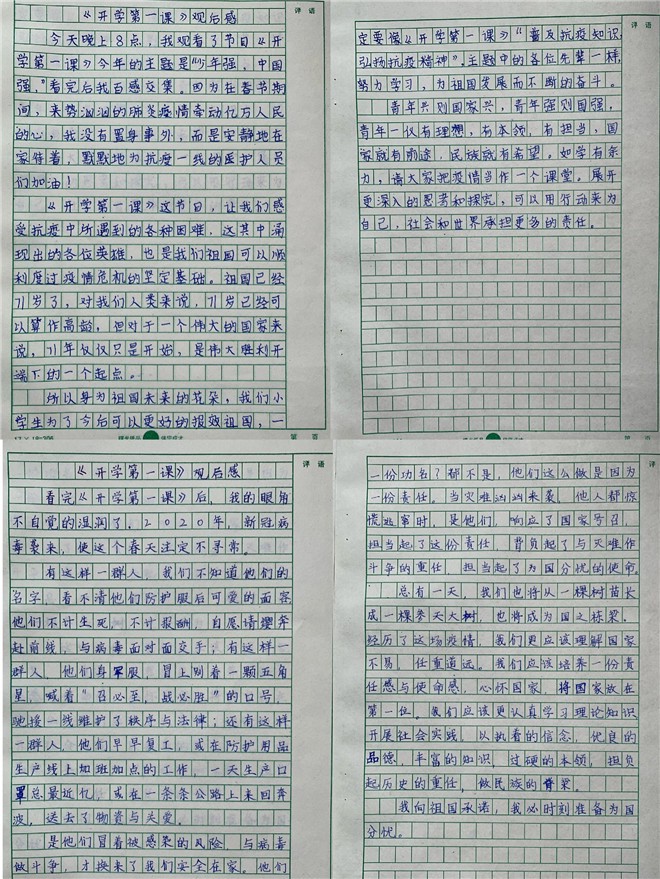 《开学第一课》观后感
今天晚上8点，我观看了节目《开
学第一课》今年的主题是"少年强，中国
强，"看完后我百感交集。因为在春节期
间，来势汹汹的肺炎疫情牵动亿万人民
的心，我没有置身事外，而是安静地在
家待着，默默地为抗疫一线的医护人员
们加油！
《开学第一课》这节目，让我们感
受抗疫中所遇到的各种困难，这其中涌
现出的各位英雄，也是我们祖国可以顺
利度过疫情危机的坚定基础。祖国已经
71岁了，对我们人类来说，71岁已经可
以算作高龄，但对于一个伟大的国家来
说，71年仅仅只是开始，是伟大胜利开
端下的一个起点。
所以身为祖国未来的花朵，我们小
学生为了今后可以更好的报效祖国，一
评语
定要像《开学第一课》"普及抗疫知识，
弘扬抗疫精神"。主题中的各位先辈一样，
努力学习，为祖国发展而不断的奋斗。
青年兴则国家兴，青年强则国强，
青年一代有理想，有本领，有担当，国
家就有前途，民族就有希望。如学有条
力，请大家把疫情当作一个课堂。展开
更深入的思考和探究，可以用行动来为
自己，社会和世界承担更多的责任。
评语
《开学第一课》观后感
看完《开学第一课》后，我的眼角
不自觉的湿润了，2020年，新冠病
毒袭来，使这个春天注定不寻常。
有这样一群人，我们不知道他们的
名字，看不清他们防护服后可爱的面容，
他们不计生死，不计报酬，自愿请缨奔
赴前线，与病毒面对面交手；有这样一
群人，他们身军服，冒上别着一颗五角
星，喊着"召必至，战必胜"的口号，
驰援一线维护了秩序与法律；还有这样
一群人，他们早早复工，或在防护用品
生产线上加班加点的工作，一天生产口
罩总最近亿，或在一条条公路上来回奔
波，送去了物资与关爱。
是他们冒着被感染的风险，与病毒
做斗争，才换来了我们安全在家。他们
评语
一份功名？都不是，他们这么做是因为
一份责任。当灾难汹汹来袭，他人都惊
慌逃窜时，是他们，响应了国家号召，
担当起了这份责任，背负起了与灾难作
斗争的重任，担当起了为国分忧的使命。
总有一天，我们也将从一棵树苗长
成一棵参天大树，也将成为国之栋梁。
经历了这场疫情，我们更应该理解国家
不易，任重道远。我们应该培养一份责
任感与使命感，心怀国家，将国家放在
第一位。我们应该更认真学习理论知识
开展社会实践，以执着的信念，优良的
品德，丰富的知识，过硬的本领，担负
起历史的重任，做民族的脊梁。
我向祖国承诺，我必时刻准备为国
分忧。
评语